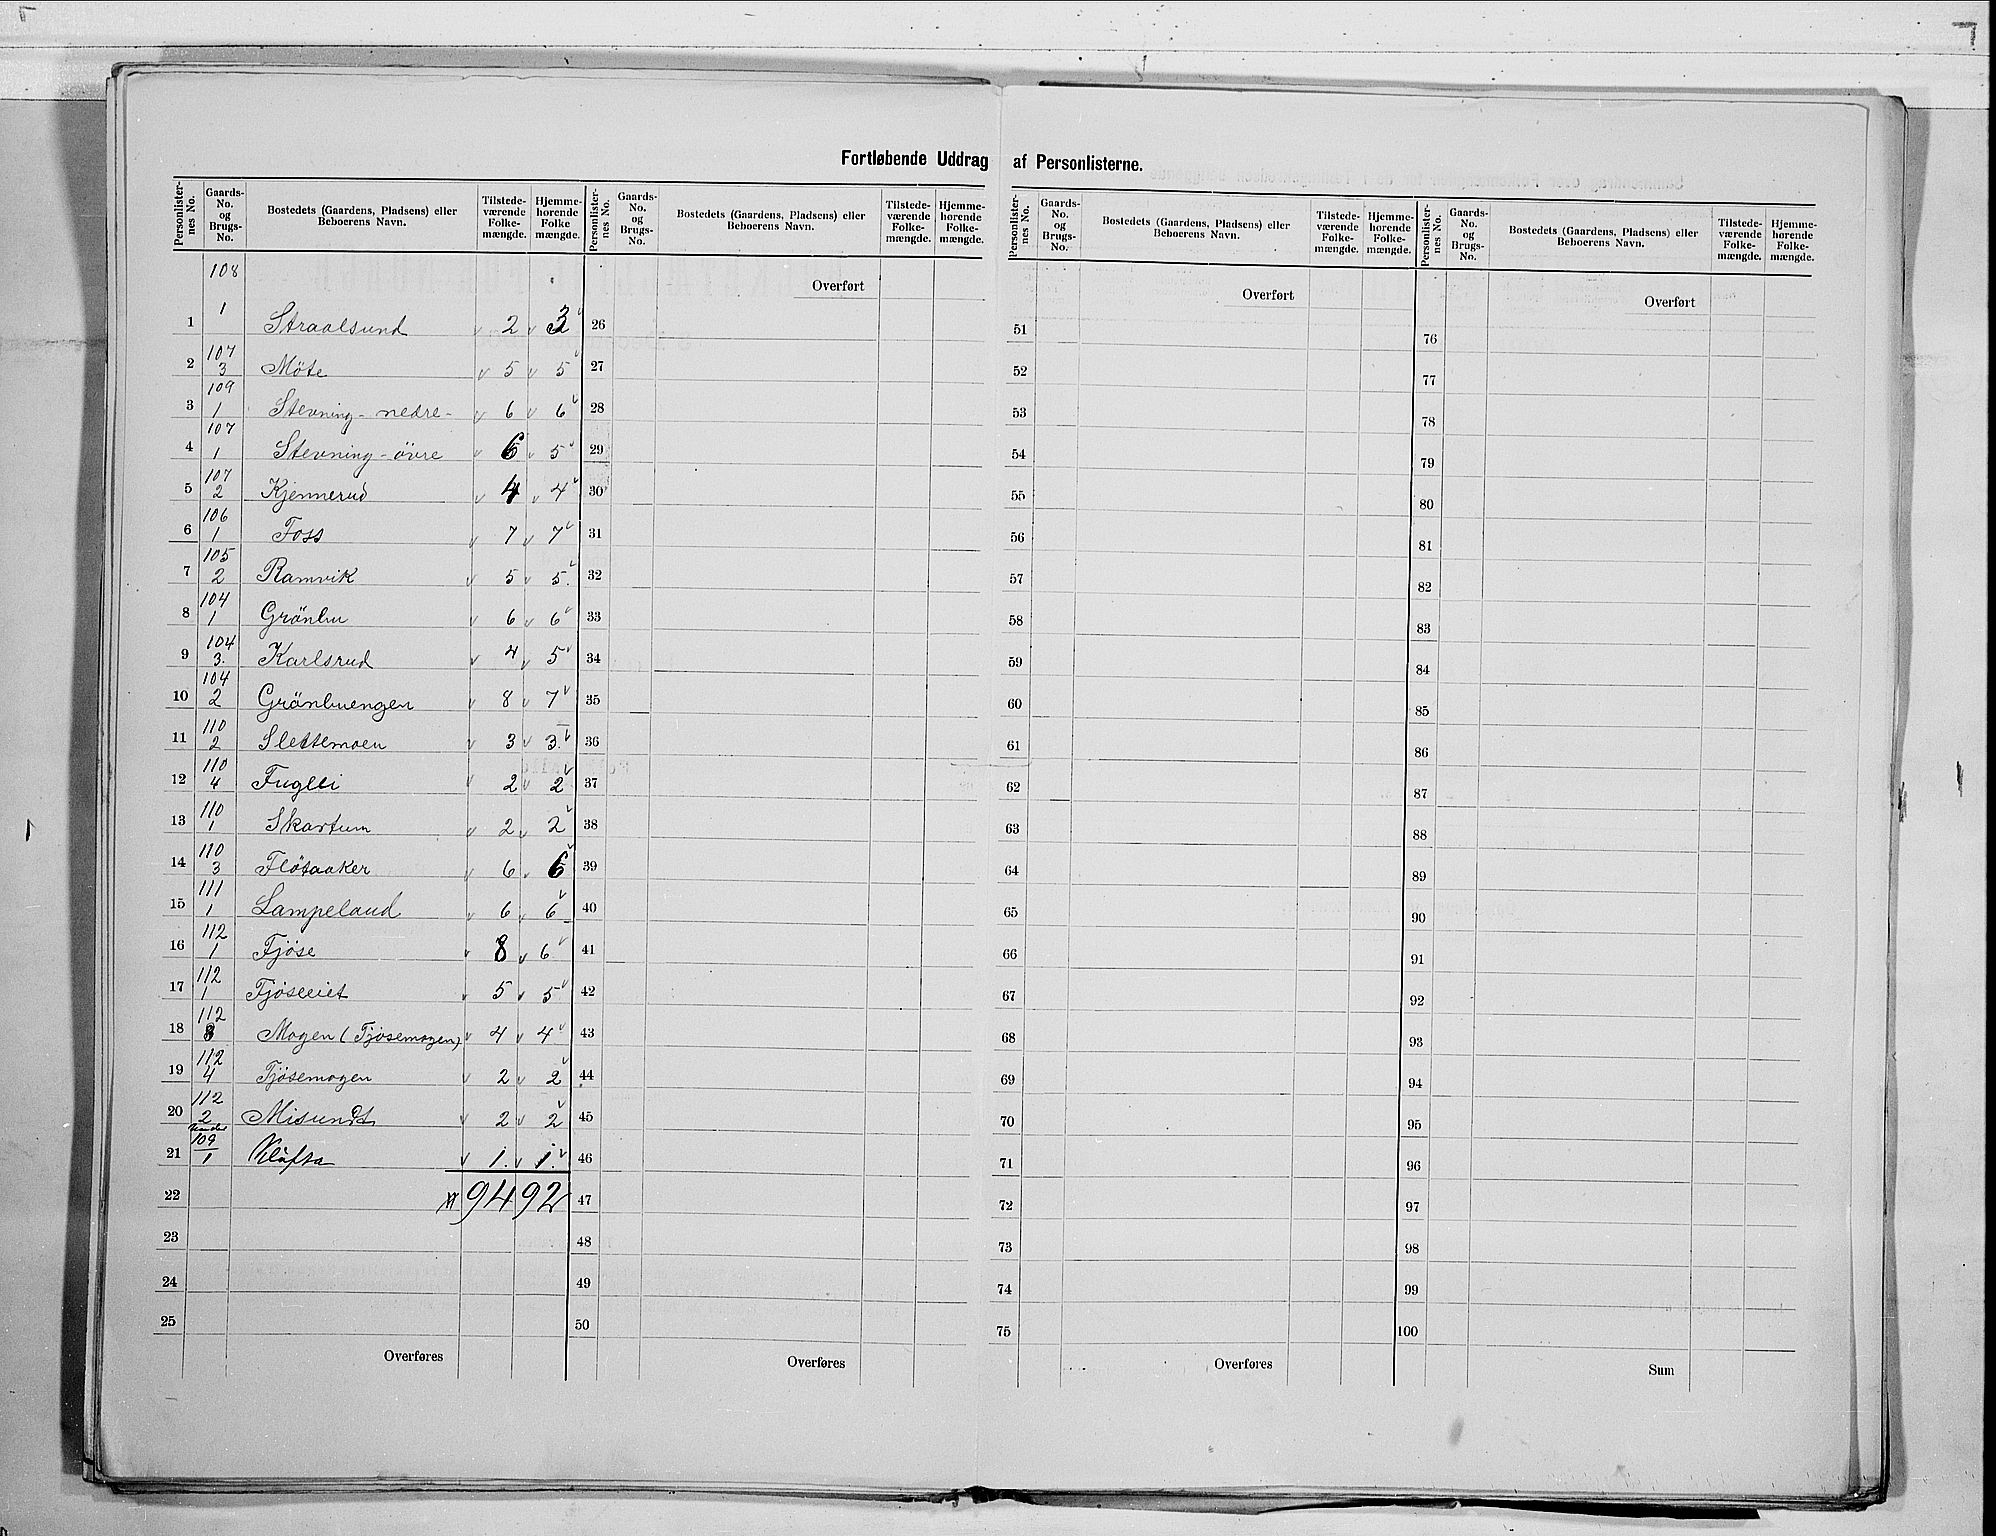 Fortløbende Uddrag af Personlisterne.
Personlister-nes No. Gaards-No. og Brugs-No. Bostedets (Gaardens, Pladsens) eller Beboerens Navn. Tilstede-værende Folke-mængde. Hjemme-hørende Folke mængde.
108
1 1 Straalsund v 2 v 3 v
2 107 3 Möte v 5 v 5 v
3 109 1 Stevning - nedre - v 6 v 6 v
4 107 1 Stevning - övre v 6 v 5 v
5 107 2 Kjennerud v 4 v 4 v
6 106 1 Foss v 7 v 7 v
7 105 2 Ramvik v 5 v 5. v
8 104 1 Grönbu v 6 v 6 v
9 104 3. Karlsrud v 4 v 5 v
10 104 2 Grönbuengen v 8 v 7 v
11 110 2 Slettemoen v 3 v 3. v
12 110 4 Fuglei v 2 v 2 v
13 110 1 Skartum v 2 v 2 v
14 110 3 Flötaaker v 6 v 6 v
15 111 1 Lampeland v 6 v 6 v
16 112 1 Fjöse v 8 v 6 v
17 112 1 Fjöseeiet v 5 v 5 v
18 112 8 Mogen (Fjösemogen) v 4 v 4 v
19 112 4 Fjösemogen v 2 v 2 v
20 112 2 Misundt v 2 v 2 v
21 under 109 1 Klöfta v 1. v 1. v
22 94 92
23
24
25
Overføres
Personlister-nes No. Gaards-No. og Brugs-No. Bostedets (Gaardens, Pladsens) eller Beboerens Navn. Tilstede-værende Folke-mængde. Hjemme-hørende Folke-mængde.
Overført
26
27
28
29
30
31
32
33
34
35
36
37
38
39
40
41
42
43
44
45
46
47
48
49
50
Overføres
Personlister-nes No. Gaards-No. og Brugs-No. Bostedets (Gaardens, Pladsens) eller Beboerens Navn. Tilstede-værende Folke-mængde. Hjemme-hørende Folke-mængde.
Overført
51
52
53
54
55
56
57
58
59
60
61
62
63
64
65
66
67
68
69
70
71
72
73
74
75
Overføres
Personlister-nes No. Gaards-No. og Brugs-No. Bostedets (Gaardens, Pladsens) eller Beboerens Navn. Tilstede-værende Folke-mængde. Hjemme-hørende Folke-mængde.
Overført
76
77
78
79
80
81
82
83
84
85
86
87
88
89
90
91
92
93
94
95
96
97
98
99
100
Sum